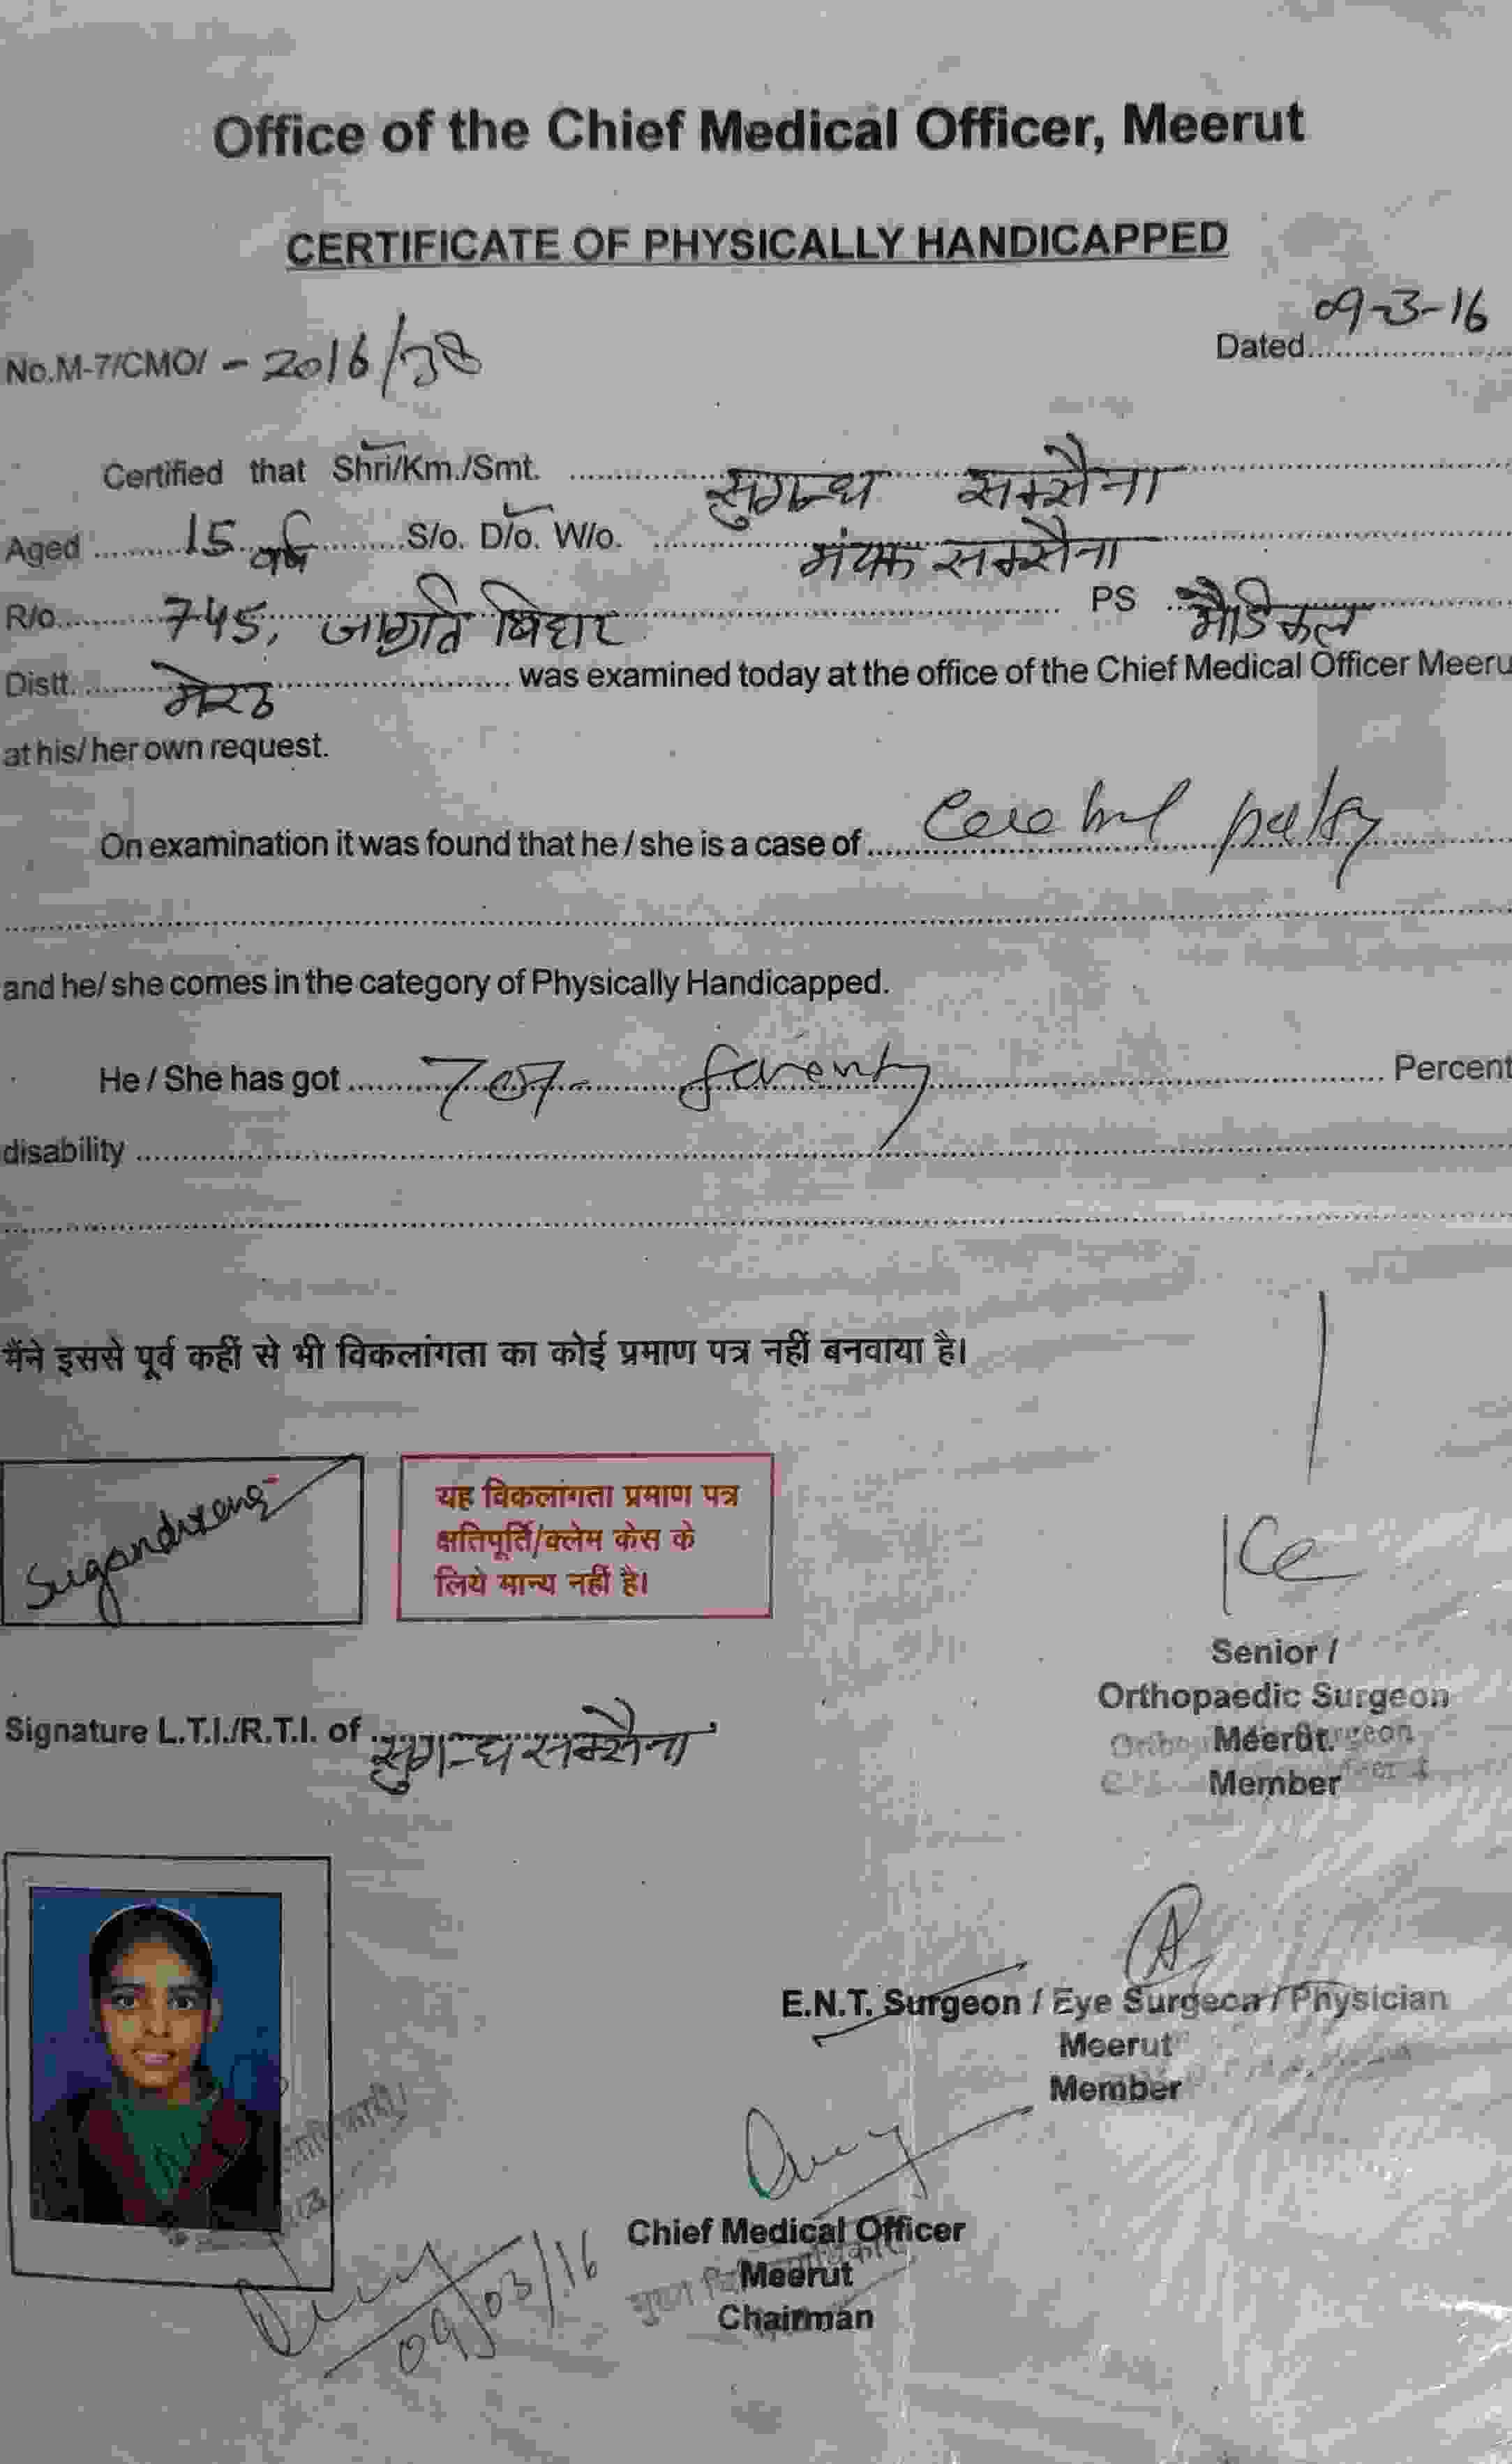 Office of the Chief Medical Officer, Meerut
CERTIFICATE OF PHYSICALLY HANDICAPPED
No.M-7/CMO/ - 2016/38 Dated 09-3-16
Certified that Shri/Km./Smt. सुगन्ध सक्सैना
Aged 15 वर्ष S/o. D/o. W/o. मंयक सक्सैना
R/o. 745, जागृति बिहार PS मैडिकल
Distt. मेरठ was examined today at the office of the Chief Medical Officer Meeru
at his/ her own request.
On examination it was found that he / she is a case of Cerebral palsy
and he/ she comes in the category of Physically Handicapped.
He / She has got 70% Seventy Percent
disability
मैंने इससे पूर्व कहीं से भी विकलांगता का कोई प्रमाण पत्र नहीं बनवाया है।
यह विकलांगता प्रमाण पत्र
क्षतिपूर्ति/क्लेम केस के
लिये मान्य नहीं है।
Senior /
Orthopaedic Surgeon
Meerut.
Member
Signature L.T.I./R.T.I. of सुगन्ध सक्सैना
E.N.T. Surgeon / Eye Surgeon / Physician
Meerut
Member
Chief Medical Officer
Meerut
Chairman
09/03/16